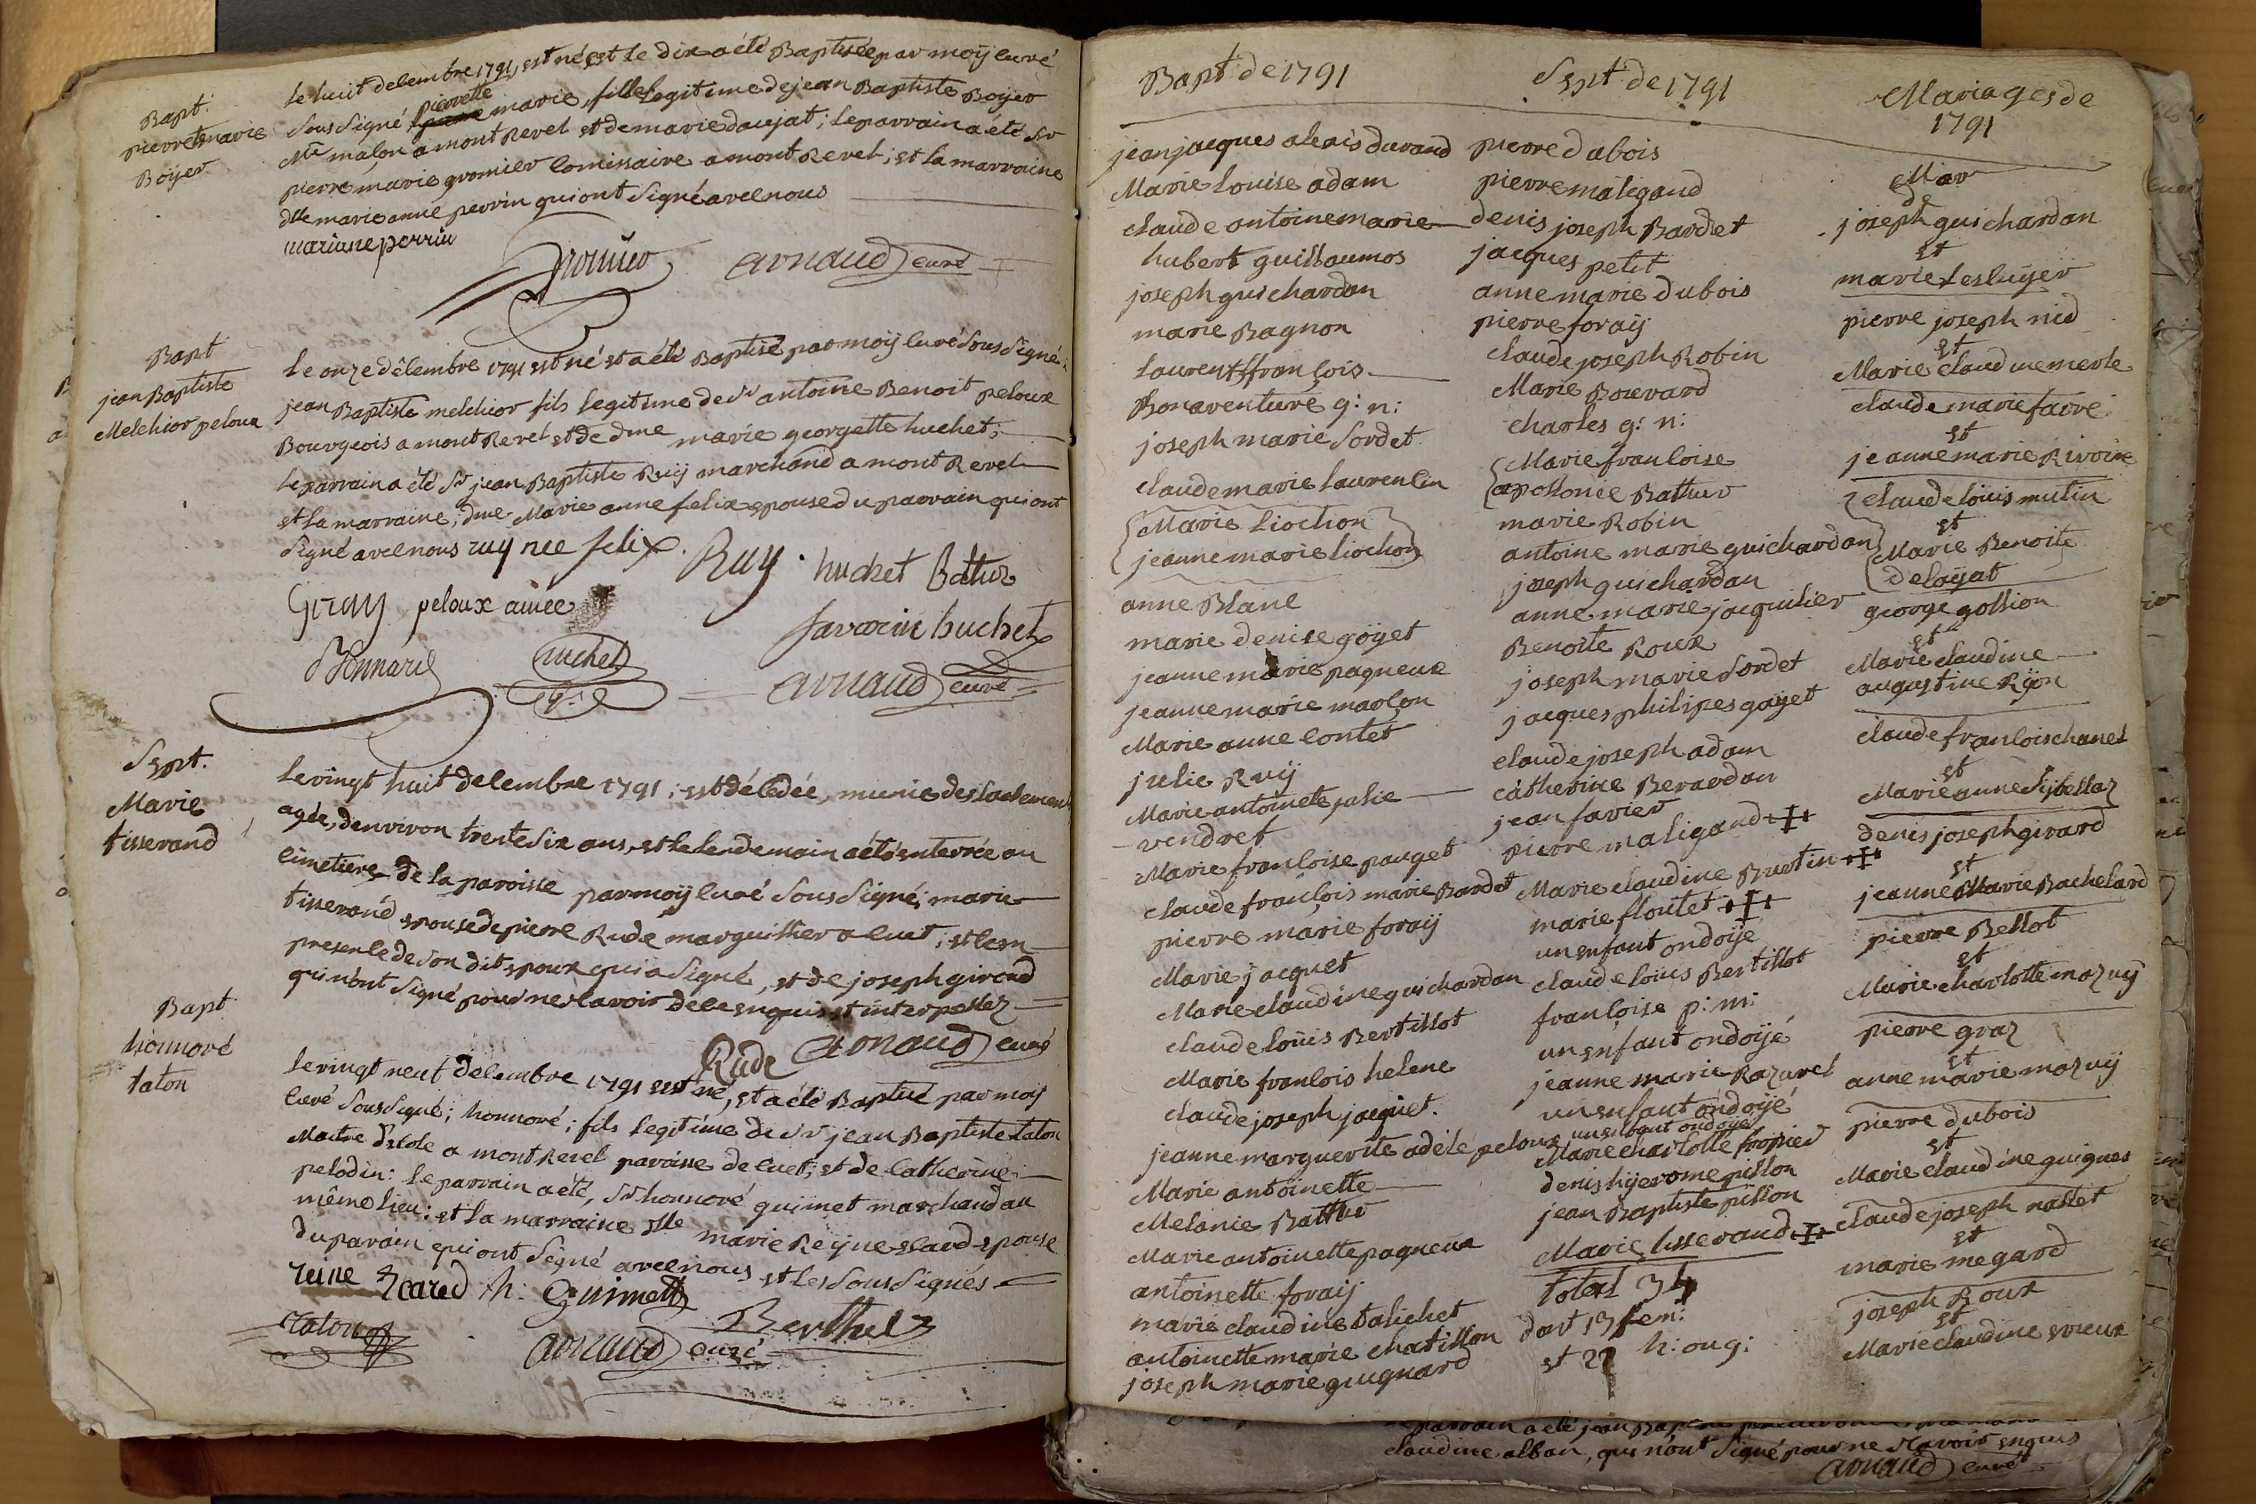 Bapt.
pierrette marie
Boyer
le huit decembre 1791, est née et le dix a été Baptisée par moy curé
sous signé, pierrette marie, fille legitime de jean Baptiste Boyer
Md malon a montRevel et de marie daujat; le parrain a été Sr
pierre marie gromier comissaire a montRevel; et la marraine
dlle marie anne perrin qui ont signé avec nous
marianne perrin
gromier arnaud curé
Bapt
jean Baptiste
Melchior peloux
le onze décembre 1791 est né et a été Baptisé par moy curé sous signé:
jean Baptiste melchior fils legitime de Sr antoine Benoit peloux
Bourgeois a montRevel et de dme marie georgette huchet;
le parrain a été Sr jean Baptiste Ruy marchand a montRevel
et la marraine; dme Marie anne felix epouse du parrain qui ont
signé avec nous ruy nee felix. Ruy. huchet Battur
peloux ainée
favarin huchet
Bonnard huchet
arnaud curé
Sept.
Marie
tisserand
le vingt huit decembre 1791; est décédée, munie des sacrements
agée, d'environ trente six ans, et le lendemain a été enterrée au
cimetiere de la paroisse par moy curé sous signé; marie
tisserand epouse de pierre Rude marguillier a cuet; et ce en
presence de son dit epoux qui a signé, et de joseph giroud
qui n'ont signé pour ne sçavoir de ce enquis et interpellez
Rude arnaud curé
Bapt
honnoré
taton
le vingt neuf decembre 1791 est né, et a été Baptisé par moy
curé sous signé; honnoré; fils legitime de Sr jean Baptiste taton
Maitre d'ecole a montRevel paroisse de cuet; et de Catherine
pelodin: le parrain a été, Sr honnoré guimet marchand au
même lieu: et la marraine dlle marie Reyne ecard epouse
du parain qui ont signé avec nous et les sous signés
reine Ecared h: Guimet
taton arnaud curé Berthel
Bapt de 1791
jean jacques alexis durand
Marie louise adam
claude antoine marie
hubert guillaumos
joseph guichardan
marie Bagnon
laurent françois
Bonaventure g: n:
joseph marie Sordet
claude marie laurencin
Marie liochon
jeanne marie liochon
anne Blanc
marie denise goyet
jeanne marie pagneux
jeanne marie marlon
Marie anne contet
julie Ruy
Marie antoinete julie
vendret
Marie françoise pauget
claude françois marie Bardet
pierre marie foray
Marie jacquet
Marie claudine guichardan
claude loüis Bertillot
Marie françois helene
claude joseph jacquet.
jeanne marguerite adèlé peloux
Marie antoinette
Melanie Battur
Marie antoinette pagneux
antoinette foray
marie claudine talichet
antoinette marie chatillon
joseph marie guignard
Sept de 1791
pierre dubois
pierre maligaud
denis joseph Bardet
jacques petit
anne marie dubois
pierre foray
claude joseph Robin
Marie Bouvard
charles g: n:
Marie françoise
apollonie Battur
marie Robin
antoine marie guichardan
joseph guichardan
anne marie jacquilier
Benoite Roux
joseph marie Sordet
jacques philipes goyet
claude joseph adam
catherine Berardan
jean favier
pierre maligaud
Marie claudine Burtin
marie floutet
un enfant ondoÿe
claude loüis Bertillot
françoise p: m:
un enfant ondoÿé
jeanne marie Razurel
un enfant ondoÿé
un enfant ondoyé
Marie charlotte fropied
denis hyerome pillon
jean Baptiste pillon
Marie tisserand
total 34
dont 13 fem:
et 21 h: ou g:
Mariages de
1791
Mar
de
joseph guichardan
et
marie lescuyer
pierre joseph nid
et
Marie claudine merle
claude marie favre
et
jeanne marie Rivoire
claude loüis mutin
et
Marie Benoite
deloÿat
george gollion
et
Marie claudine
augustine Ryon
claude françois chanel
et
Marie anne Sybellaz
denis joseph girard
et
jeanne Marie Bachelard
pierre Bellot
et
Marie charlotte mazuy
pierre graz
et
anne marie mazuy
pierre dubois
et
Marie claudine guigues
claude joseph nallet
et
marie megard
joseph Roux
et
Marie claudine vieux
parrain a été jean Bap
claudine alban, qui n'ont signé pour ne sçavoir enquis
arnaud curé